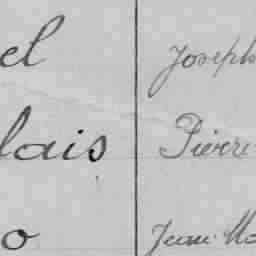 el Joseph
lais Pierre
o Jean Ma